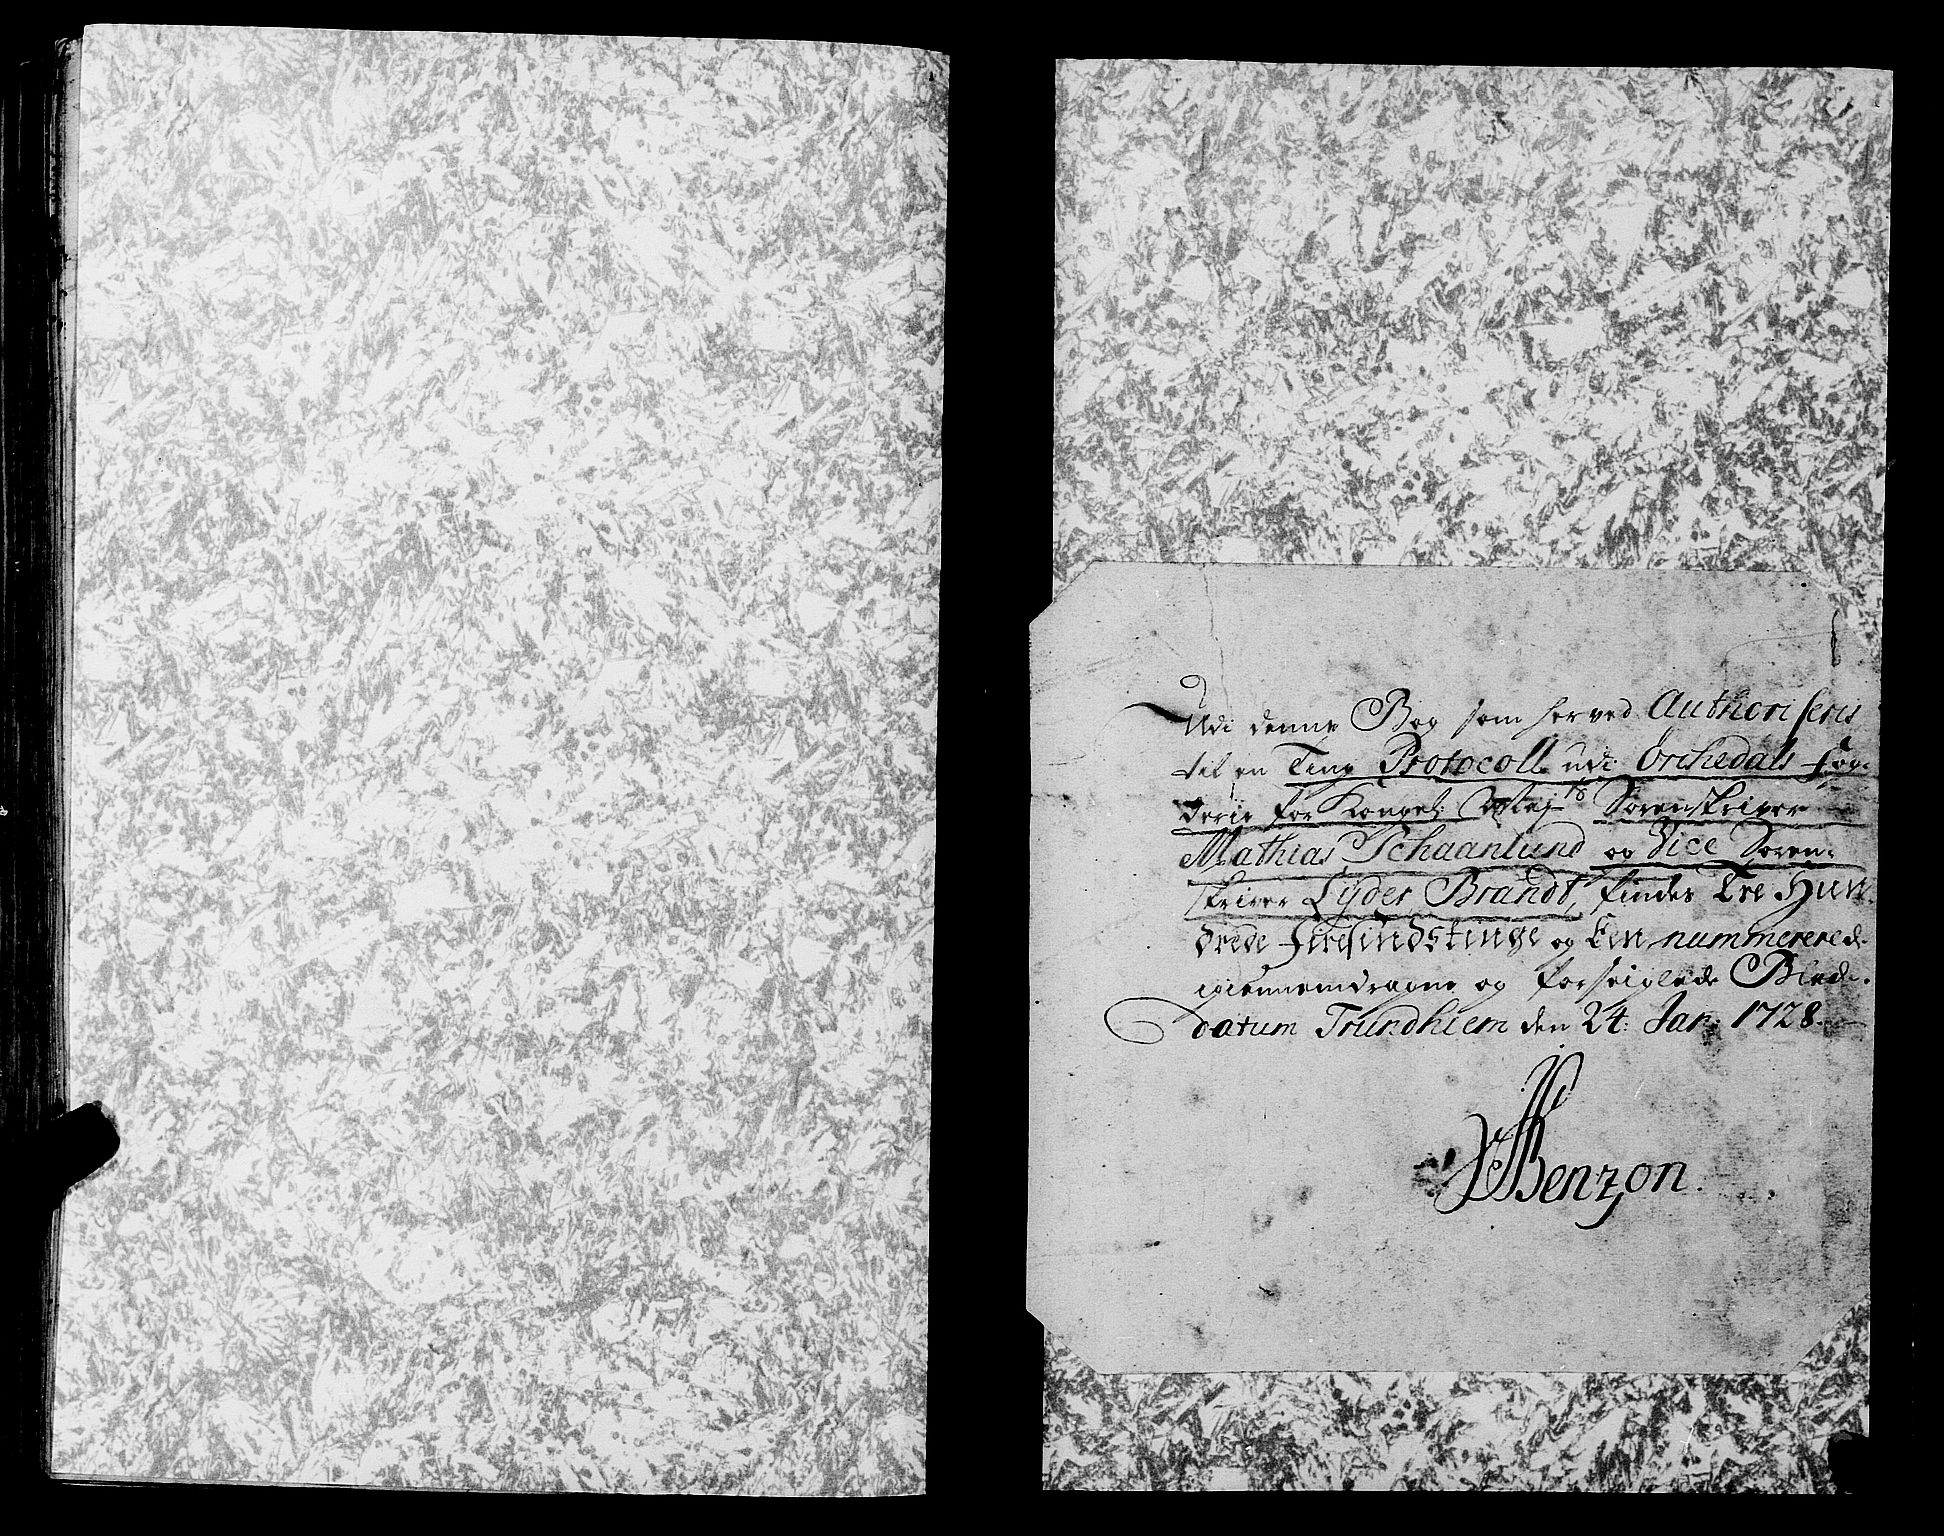 Udi denne Bog som herved Authoriseris
til en Ting Protocoll udi Orchedals fog-
derie for Kongel: Maj:ts Sorenskriver
Mathias Schaanlund og Vice Soren-
skriver Lyder Brandt, findes Tre Hun-
drede Firesindstinge og Een nummererede
igiennemdragne og forseiglede Blade.
datum Trundhiem den 24: Jan: 1728.
Benzon.